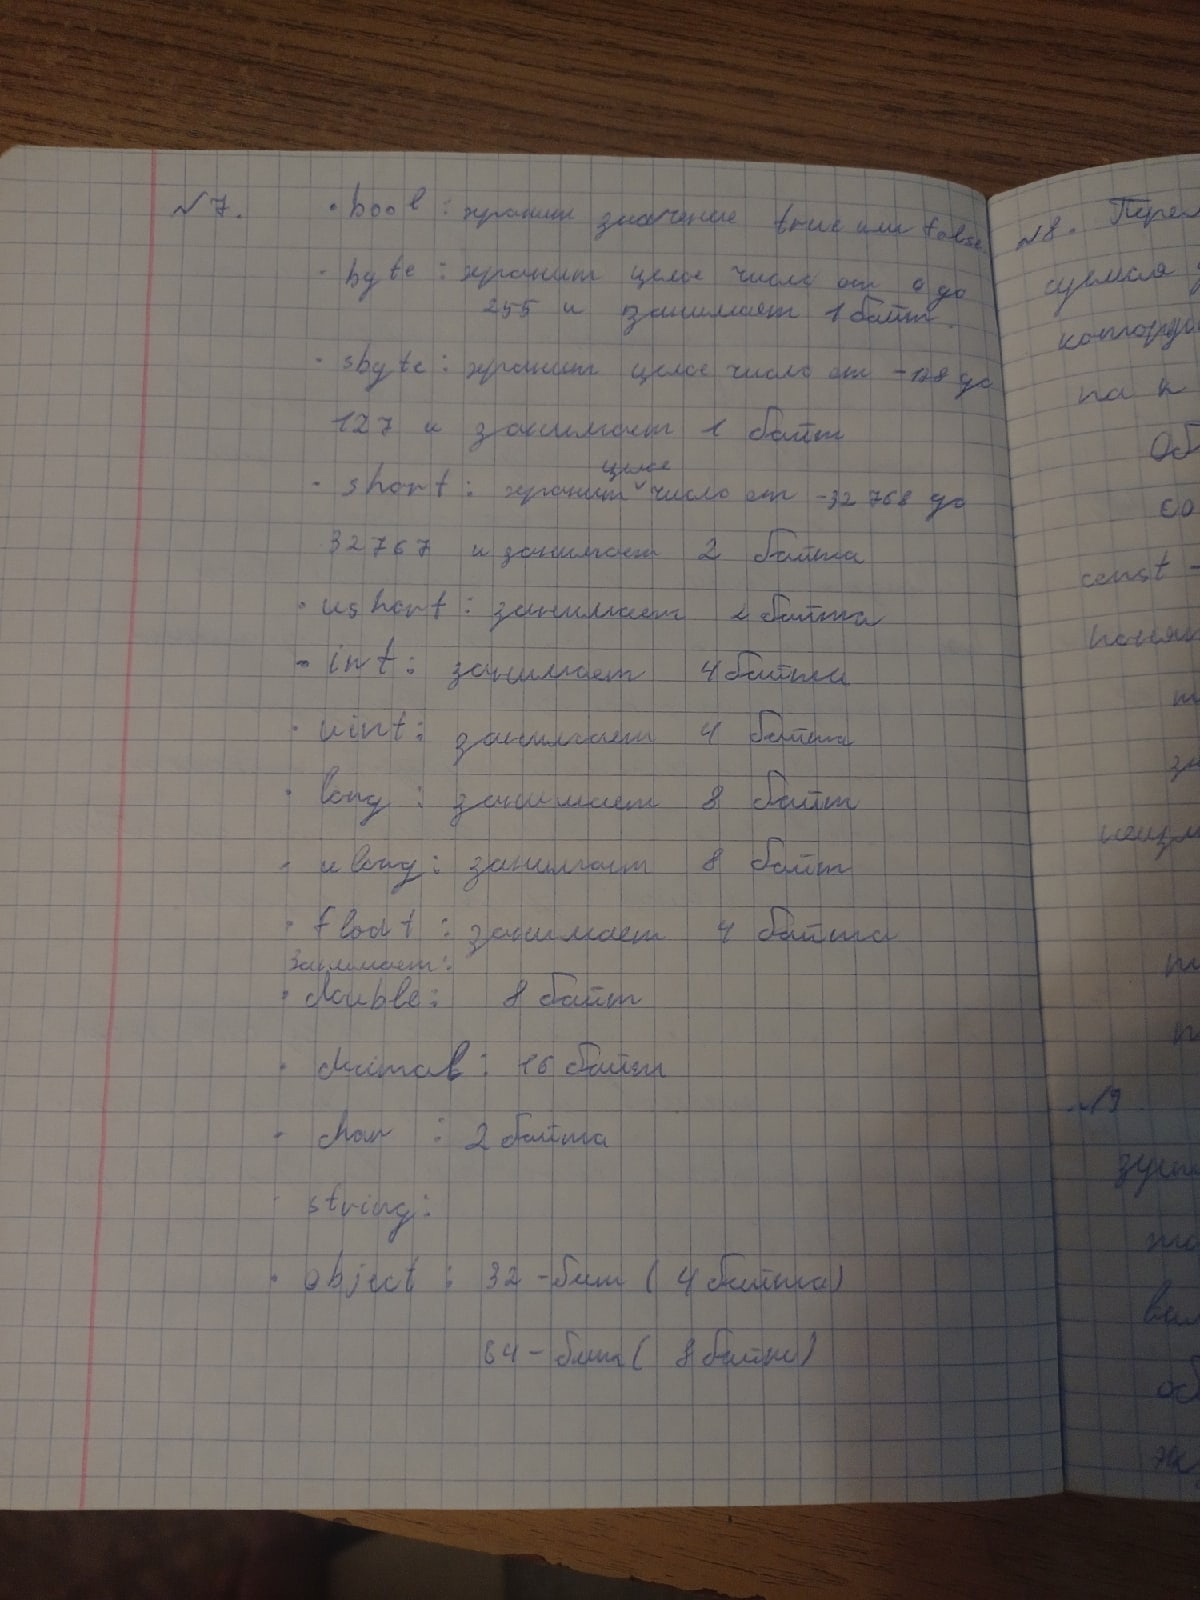 №7. • bool : хранит значение true или false.
• byte : хранит целое число от 0 до
255 и занимает 1 байт.
• sbyte : хранит целое число от -128 до
127 и занимает 1 байт
целое
• short : хранит ˅ число от -32 768 до
32767 и занимает 2 байта
• ushort : занимает 2 байта
• int : занимает 4 байта
• uint : занимает 4 байта
• long : занимает 8 байт
• ulong : занимает 8 байт
• float : занимает 4 байта
Занимает :
• double : 8 байт
• decimal : 16 байт
• char : 2 байта
• string :
• object : 32 - бит ( 4 байта)
64 - бит ( 8 байт)
№8.
па к
const -
№9